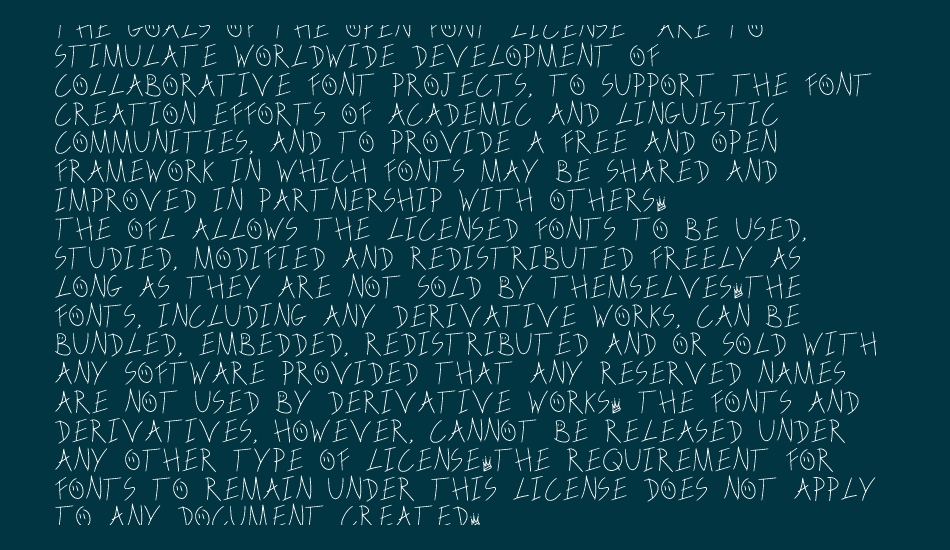 THE GOALS OF THE OPEN FONT LICENSE ARE TO
STIMULATE WORLDWIDE DEVELOPMENT OF
COLLABORATIVE FONT PROJECTS, TO SUPPORT THE FONT
CREATION EFFORTS OF ACADEMIC AND LINGUISTIC
COMMUNITIES, AND TO PROVIDE A FREE AND OPEN
FRAMEWORK IN WHICH FONTS MAY BE SHARED AND
IMPROVED IN PARTNERSHIP WITH OTHERS.
THE OFL ALLOWS THE LICENSED FONTS TO BE USED,
STUDIED, MODIFIED AND REDISTRIBUTED FREELY AS
LONG AS THEY ARE NOT SOLD BY THEMSELVES.THE
FONTS, INCLUDING ANY DERIVATIVE WORKS, CAN BE
BUNDLED, EMBEDDED, REDISTRIBUTED AND OR SOLD WITH
ANY SOFTWARE PROVIDED THAT ANY RESERVED NAMES
ARE NOT USED BY DERIVATIVE WORKS. THE FONTS AND
DERIVATIVES, HOWEVER, CANNOT BE RELEASED UNDER
ANY OTHER TYPE OF LICENSE.THE REQUIREMENT FOR
FONTS TO REMAIN UNDER THIS LICENSE DOES NOT APPLY
TO ANY DOCUMENT CREATED.